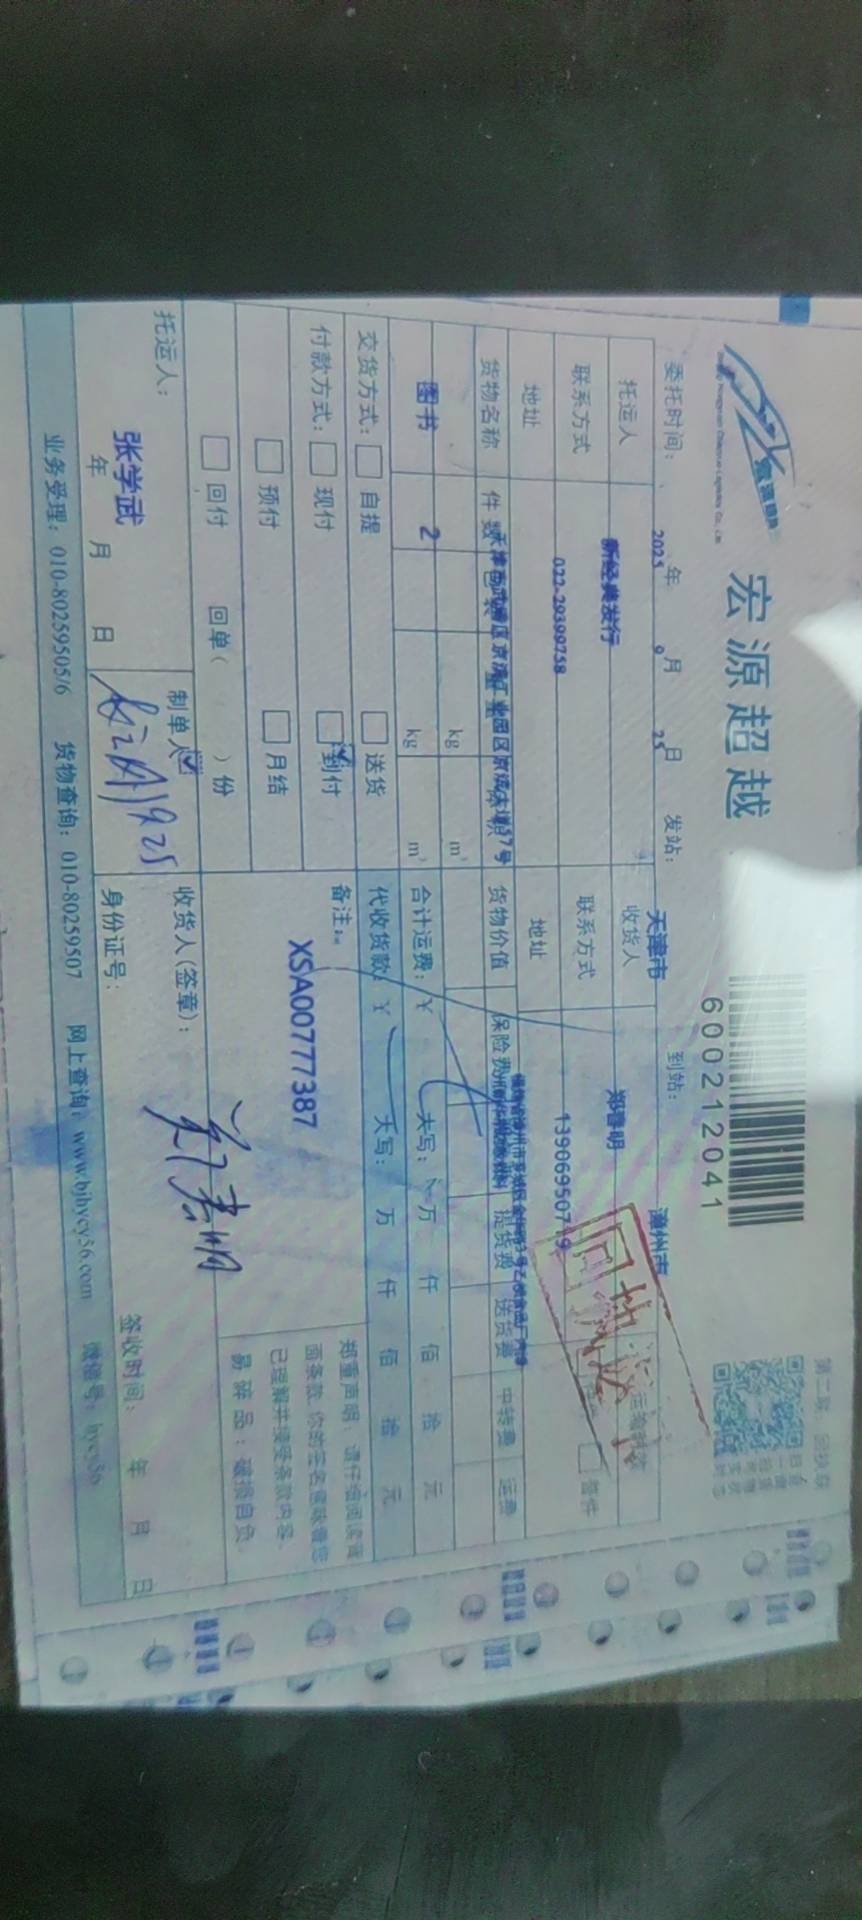 宏源超越
6002122041
第二联：回执联
委托时间： 2025 年 9 月 25 日 发站： 天津市 到站： 漳州市
托运人 新经典发行 收货人
联系方式 022-29399758 联系方式
地址 天津市武清区京滨工业园区京滨大道37号 地址
货物名称 件数 包装 重量 体积 货物价值 保险费 提货费 送货费 中转费 运费
kg m³
图书 2 kg m³ 合计运费：￥ 大写： 万 仟 佰 拾 元
交货方式： 自提 送货 代收货款：￥ 大写： 万 仟 佰 拾 元
付款方式： 现付 到付 备注：
预付 月结
XSA00777387
回付 回单（ ）份
郑重声明：请仔细阅读背
面条款，你的签名意味着您
已理解并接受条款内容。
易碎品：破损自负
托运人： 张学武 制单人 收货人(签章)：
年 月 日 身份证号： 签收时间： 年 月 日
业务受理：010-80259505/6 货物查询：010-80259507 网上查询：www.bjhycy56.com 微信号：hycy56